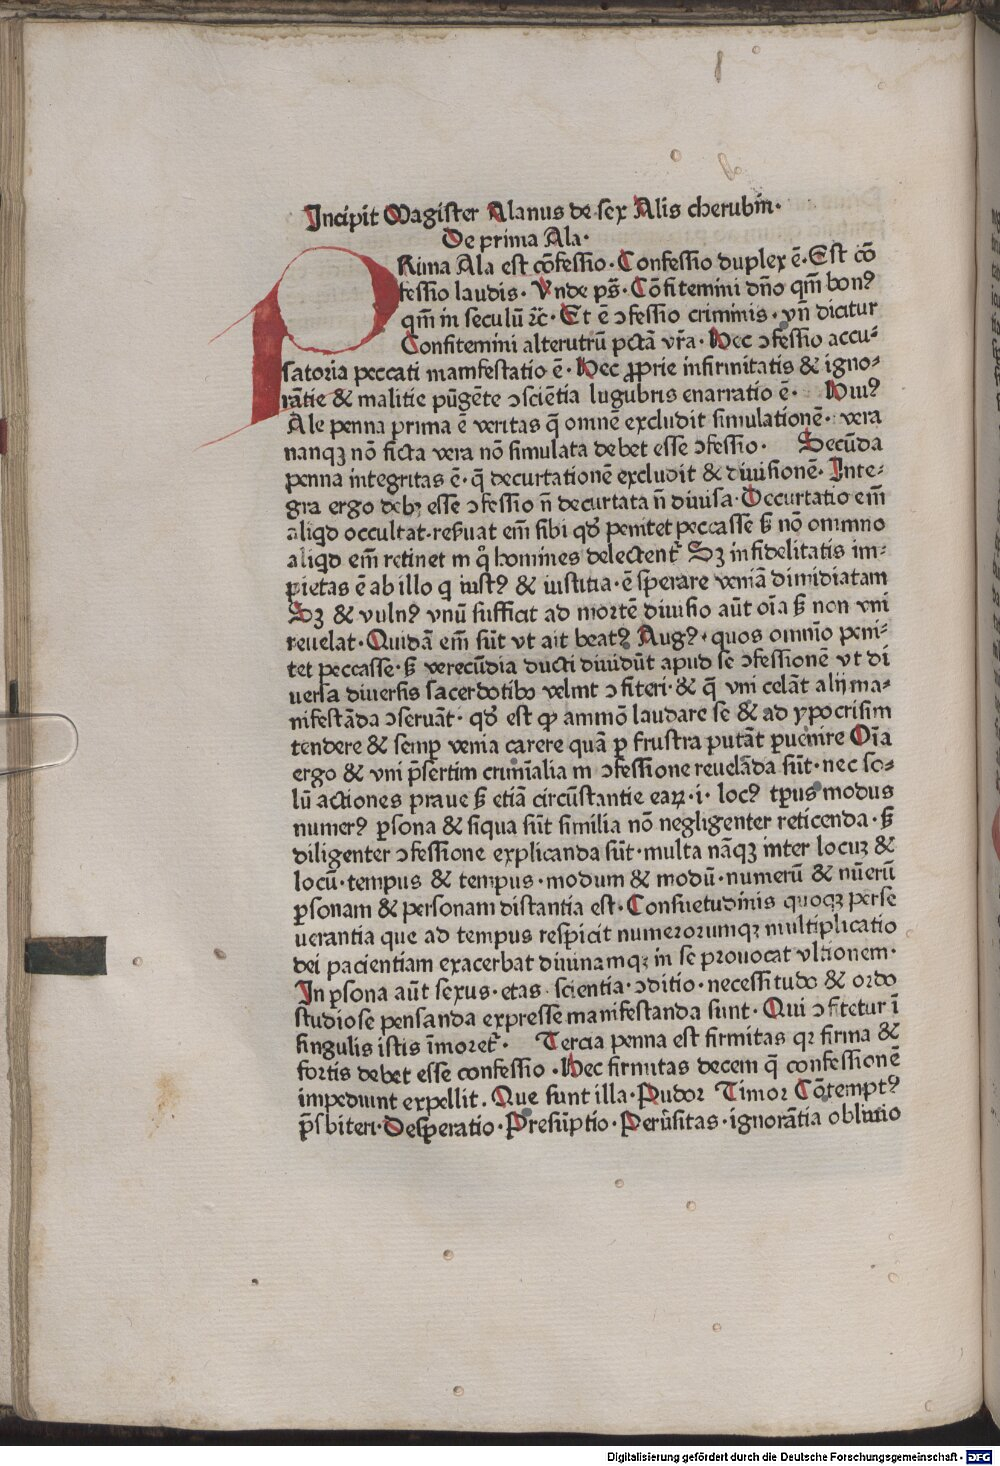 Incipit Magister Alanus de sex Alis cherubin·
De prima Ala·
PRima Ala est cōfessio· Confessio duplex ē· Est cō
fessio laudis· Vnde ps̄· Cōfitemini dn̄o qm̄ bonꝰ
qm̄ in seculū ⁊c̄· Et ē ↄfessio criminis· vn̄ dicitur
Confitemini alterutrū pctā vr̄a· Hec ↄfessio accu⸗
satoria peccati manifestatio ē· Hec ꝓprie infirmitatis & igno⸗
rātie & malitie pūgēte ↄsciētia lugubris enarratio ē· Huiꝰ
Ale penna prima ē veritas q̄ omnē excludit simulationē· vera
nanqꝫ nō ficta vera nō simulata debet esse ↄfessio· Secūda
penna integritas ē· q̄ decurtationē excludit & diuisionē· Inte⸗
gra ergo debꝫ esse ↄfessio n̄ decurtata n̄ diuisa· Decurtatio em̄
aliqd occultat· reẜuat em̄ sibi qd̓ penitet peccasse ẜ nō omnino
aliqd em̄ retinet in q̊ homines delectent᷑ Sꝫ infidelitatis im⸗
pietas ē ab illo q̇ iustꝰ & iustitia· ē sperare veniā dimidiatam
Sꝫ & vulnꝰ vnū sufficit ad mortē diuisio aūt oīa ẜ non vni
reuelat· Quidā em̄ sūt vt ait beatꝰ Augꝰ· quos omnīo peni⸗
tet peccasse· ẜ verecūdia ducti diuidūt apud se ↄfessionē vt di
uersa diuersis sacerdotibꝰ velint ↄfiteri· & q̄ vni celāt alij ma⸗
nifestāda ↄseruāt· qd̓ est ꝙ ammō laudare se & ad ypocrisim
tendere & semp̱ venia carere quā ꝑ frustra putāt ꝑuenire Oīa
ergo & vni p̄sertim criminalia in ↄfessione reuelāda sūt· nec so⸗
lū actiones praue ẜ etiā circūstantie earꝝ· i· locꝰ tp̄us modus
numerꝰ ꝑsona & siqua sūt similia nō negligenter reticenda· ẜ
diligenter ↄfessione explicanda sūt· multa nāqꝫ inter locuꝫ &
locū· tempus & tempus· modum & modū· numerū & nūerū
ꝑsonam & personam distantia est· Consuetudinis quoqꝫ perse
uerantia que ad tempus respicit numerorumqꝫ multiplicatio
dei pacientiam exacerbat diuinamqꝫ in se prouocat vltionem·
In ꝑsona aūt sexus· etas· scientia· ↄditio· necessitudo & ordo
studiose pensanda expresse manifestanda sunt· Qui ↄfitetur ī
singulis istis īmoret᷑· Tercia penna est firmitas qꝛ firma &
fortis debet esse confessio· Hec firmitas decem q̄ confessionē
impediunt expellit. Que sunt illa· Pudor Timor Cōtemptꝰ
p̄sbiteri· Desꝑatio· Presūptio· Perūsitas· ignorātia obliuio
Digitalisierung gefördert durch die Deutsche Forschungsgemeinschaft - DFG